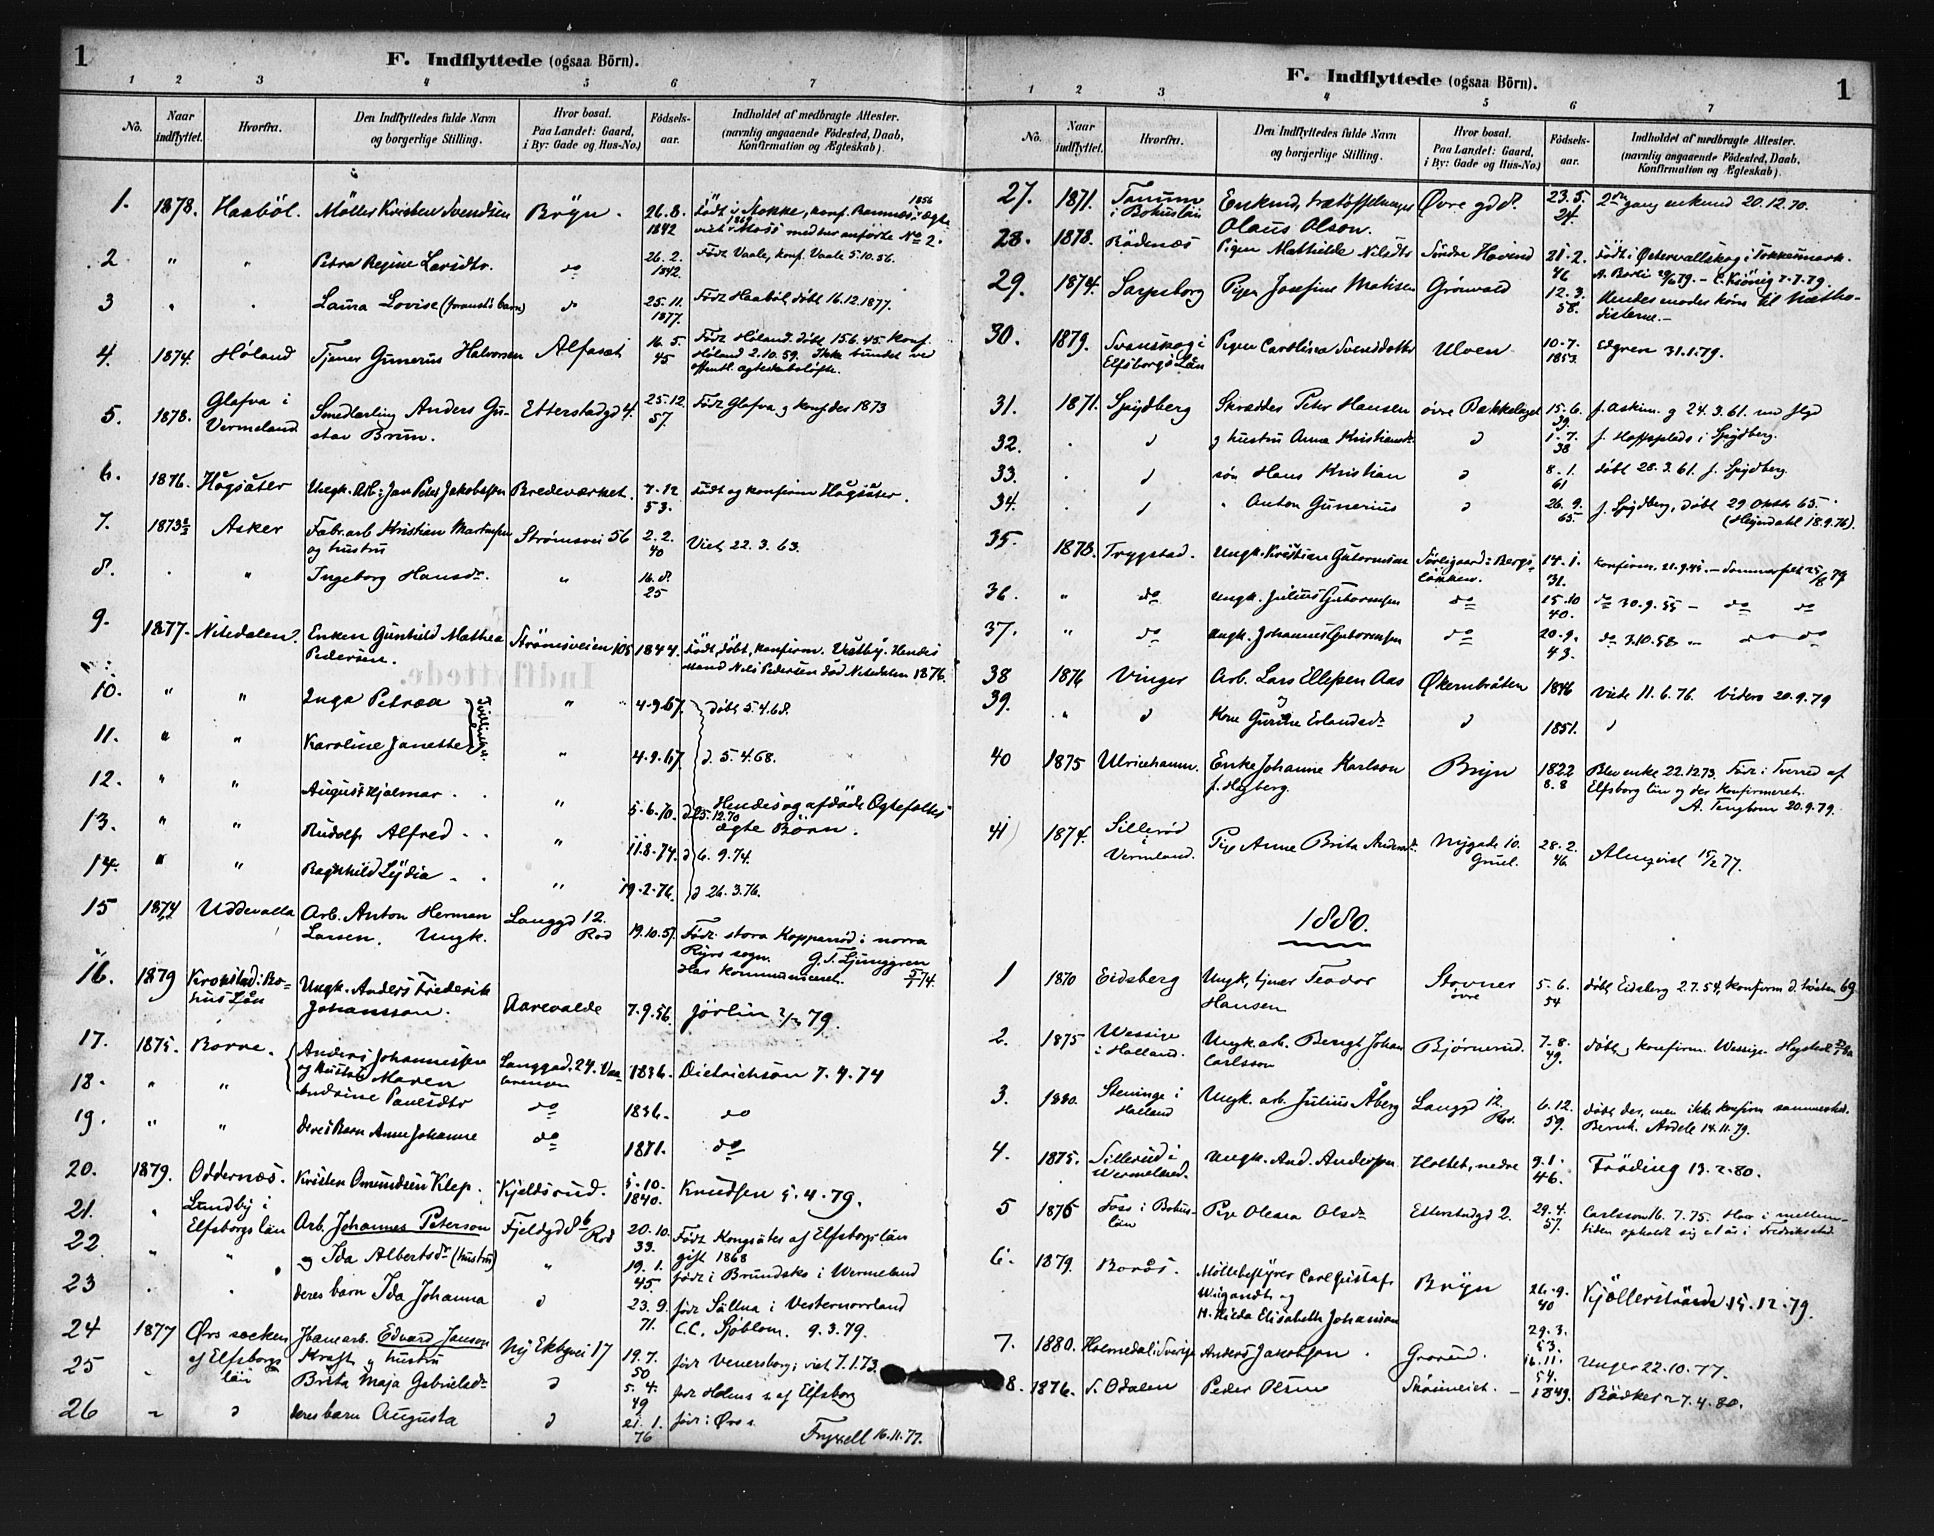 1
F. Indflyttede (ogsaa Börn).
1 2 3 4 5 6 7
No.
Naar indflyttet.
Hvorfra.
Den Indflyttedes fulde Navn og borgerlige Stilling.
Hvor bosat. Paa Landet: Gaard, i By: Gade og Hus-No.)
Födsels-aar.
Indholdet af medbragte Attester. (navnlig angaaende Födested, Daab, Konfirmation og Ægteskab).
1. 1878. Haaböl. Möller Kristen Svendsen Bryn. 26.8. 1842 Födt i Stokke, konf. Ramnes, 1856 ægte-
viet 1869 i Moss med her anförte No 2.
2 " " Petra Regine Larsdtr. do 26.2. 1842. Født Vaale, konf. Vaale 5.10.56.
3 " " Laura Lovise (foranst's barn) do 25.11. 1877. Født Haaböl, döbt 16.12.1877.
4. 1874. Höland Tjener Gunerius Halvorsen Alfaset 16.5. 45 Født Höland. döbt 15.6.45. Konf.
Höland 2.10.59. Ikke bundet ved
offentl. ægteskabsløfte.
5. 1878. Glafva i Vermeland Smedlærling Anders Gustav Brun. Etterstadgd 4. 25.12. 57. Født Glafva og konf. der 1873
6. 1876. Högsäter Ungk. Arb. Jan Peter Jakobsson Bredeværket. 7.12 53. Födt og konfirm Högsäter.
7. 1873 Asker Fabr.arb Kristian Martinsen og hustru Strömsvei 56 2.2. 40 Viet 22.3.63.
8. . " Ingeborg Hansdr. " 16.8. 25
9. 1877. Nitedalen. Enken Gunhild Mathea Pedersen. Strömsveien 108 1844. Födt, döbt, konfirm. Vestby. Hendes
Mand Nils Pedersen död Nitedalen 1876.
10. " " Inga Petrea " 4.9.67. döbt 5.4.68.
Tvillinger
11. " " Karoline Janette " 4.9.67. d. 5.4.68.
12. " " August Hjalmar " 5.6.70. d 25.12.70 Hendes og afdöde Ægtefælles
ægte Börn.
13. " " Rudolf Alfred " 11.8.74. d 6.9.74.
14. " " Ragnhild Lydia " 19.2.76. d 26.3.76.
15 1874 Uddevalla Arb. Anton Herman Larsen. Ungk. Langgd 12. Rod 19.10.57. Født stora Kopparöd i norra
Ryrs sogn. G. S. Ljunggren
Har kommuniceret.
16. 1879 Krokstad i Bohus Län Ungk. Anders Frederik Johansson. Aarevolde 7.9.56. Jörlin 79.
17. 1875. Borre. Anders Johannessen Langgad. 24. 1836. Dietrichson 7.4.74
18. " " og hustru Maren Andrine Paulsdtr do 1836. do
19. " " deres Barn Anne Johanne do 1871. do
20. 1879. Oddernæs. Kristen Omundsen Klep. Kjeldsrud. 5.10. 1840. Knudsen 5.4.79.
21. " Lundby i Elfsborgs län Arb. Johannes Peterson Fjeldgd 8 b Rod 20.10. 33. Født Kongsäter af Elfsborgs län
gift 1868
22 " " og Ida Albertsdr (hustru) " 19.1. 45 född i Brundsko i Wermeland
23 . " deres barn Ida Johanna d 23.9. 71. född Sällna i Vesternorrland
C.C. Sjöblom. 9.3.79.
24 1877 Ørs socken af Elfsborgs län Jbanearb. Edvard Janson Kraft og hustru Ny Ekbgvei 17 19.7. 50 född Venersborg; viet 7.1.73.
25 " Brita Maja Gabrielsdr d 5.4. 49 född Holms s. af Elfsborg
26 " d deres barn Augusta d 21.1. 76 född i Örs s.
Fryxell 16.11.77.
F. Indflyttede (ogsaa Börn).
1
1 2 3 4 5 6 7
No.
Naar indflyttet.
Hvorfra.
Den Indflyttedes fulde Navn og borgerlige Stilling.
Hvor bosat. Paa Landet: Gaard, i By: Gade og Hus-No.)
Födsels-aar.
Indholdet af medbragte Attester. (navnlig angaaende Födested, Daab, Konfirmation og Ægteskab).
27. 1871. Tanum i Bohuslän Enkmd, trætøffelmager Olaus Olson. Øvre gd 8. 23.5. 24. 2den gang enkemd 20.12.70.
28. 1878. Rödenæs Pigen Mathilde Nilsdtr Söndre Hovind 21.2. 46 Födt i Östervallskog i Tökkemark.
29. 1874. Sarpsborg Pigen Josefine Matisen Grönvold 12.3. 58. Hendes moder kom til Metho-
disterne.
30. 1879. Svanskog i Elfsborgs Län Pigen Carolina Svensdotter Ulven 10.7. 1853. Elgren 31.1.79.
31. 1871. Spydberg Skrædder Peter Hansen övre Bækkelaget 15.6. 39. f. Askim. g 24.3.61.
32. . d og hustru Anne Kristiansd. d 1.7. 38 f. Hoffsplads i Spydberg.
33. . d søn Hans Kristian d 8.1. 61 döbt 28.3.61. f. Spydberg.
34. . d " Anton Gunerius d 26.9. 65. f. Spydberg, döbt 29 Oktbr 65.
(Heyerdahl 18.9.76).
35. 1878. Trygstad. Ungk. Kristian Gutormsen 14.1. 31. Konfirm. 21.9.45. – Sommerfelt 25/8 79
36. " do Ungk. Julius Gutormsen do 15.10 40. do 30.9.55 – do do
37. " do Ungk. Johannes Gutormsen do 20.9. 43. do 3.10.58 – do do
38 1876 Vinger Arb. Lars Ellefsen Aas Økernbråten 1846 Viet 11.6.76. 20.9.79
39. " d Kone Gurine Erlandsdr d 1851. d
40 1875 Ulricehamn. Enke Johanne Karlson f. Høgberg. Bryn 1822 8.8 Blev enke 22.12.73. Född i Tverred af
Elfsborg län og der konfirmeret.
A. Tengbom 20.9.79.
41 1874. Sillerød i Vermland. Pige Anne Brita Andersd. Nygade 10. 28.2. 46. Almqvist 15/2 77.
1880.
1 1870 Eidsberg Ungk, tjener Teodor Hansen Stovner övre 5.6. 54 döbt Eidsberg 2.7.54, konfirm d. hösten 69.
2. 1875 Wessige i Halland. Ungk. arb. Bengt Johan Carlsson Bjørnerud. 7.8. 49. döbt, konfirm. Wessige.
3. 1880. Steninge i Halland Ungk. arb. Julius Åberg Langgd 12. Rod. 6.12. 59. döbt der, men ikke konfirm sammested.
14.11.79.
4. 1875. Sillerud i Wermeland. Ungk. And. Anderssen Holtet, nedre 9.1. 46. Fröding 13.2.80.
5 1876 Foss i Bohus-län Pige Olena Olsdr Etterstadgd 2. 29.4. 57. Carlsson 16.7.75. Har i mellem-
tiden opholdt sig et år i Fredriksstad.
6. 1879. Borås. Möllebestyrer Carl Gustaf Wigandt og H. Hilda Elisabeth Johanson Bryn 26.9. 40 29.3. 53. Kjöllerström 15.12.79.
7. 1880. Holmedal i Sverige Anders Jakobsen. Grorud. 16.11. 54. Unger 22.10.77.
8. 1876. S. Odalen Peder Olsen – 1849. Bödker 7.4.80.